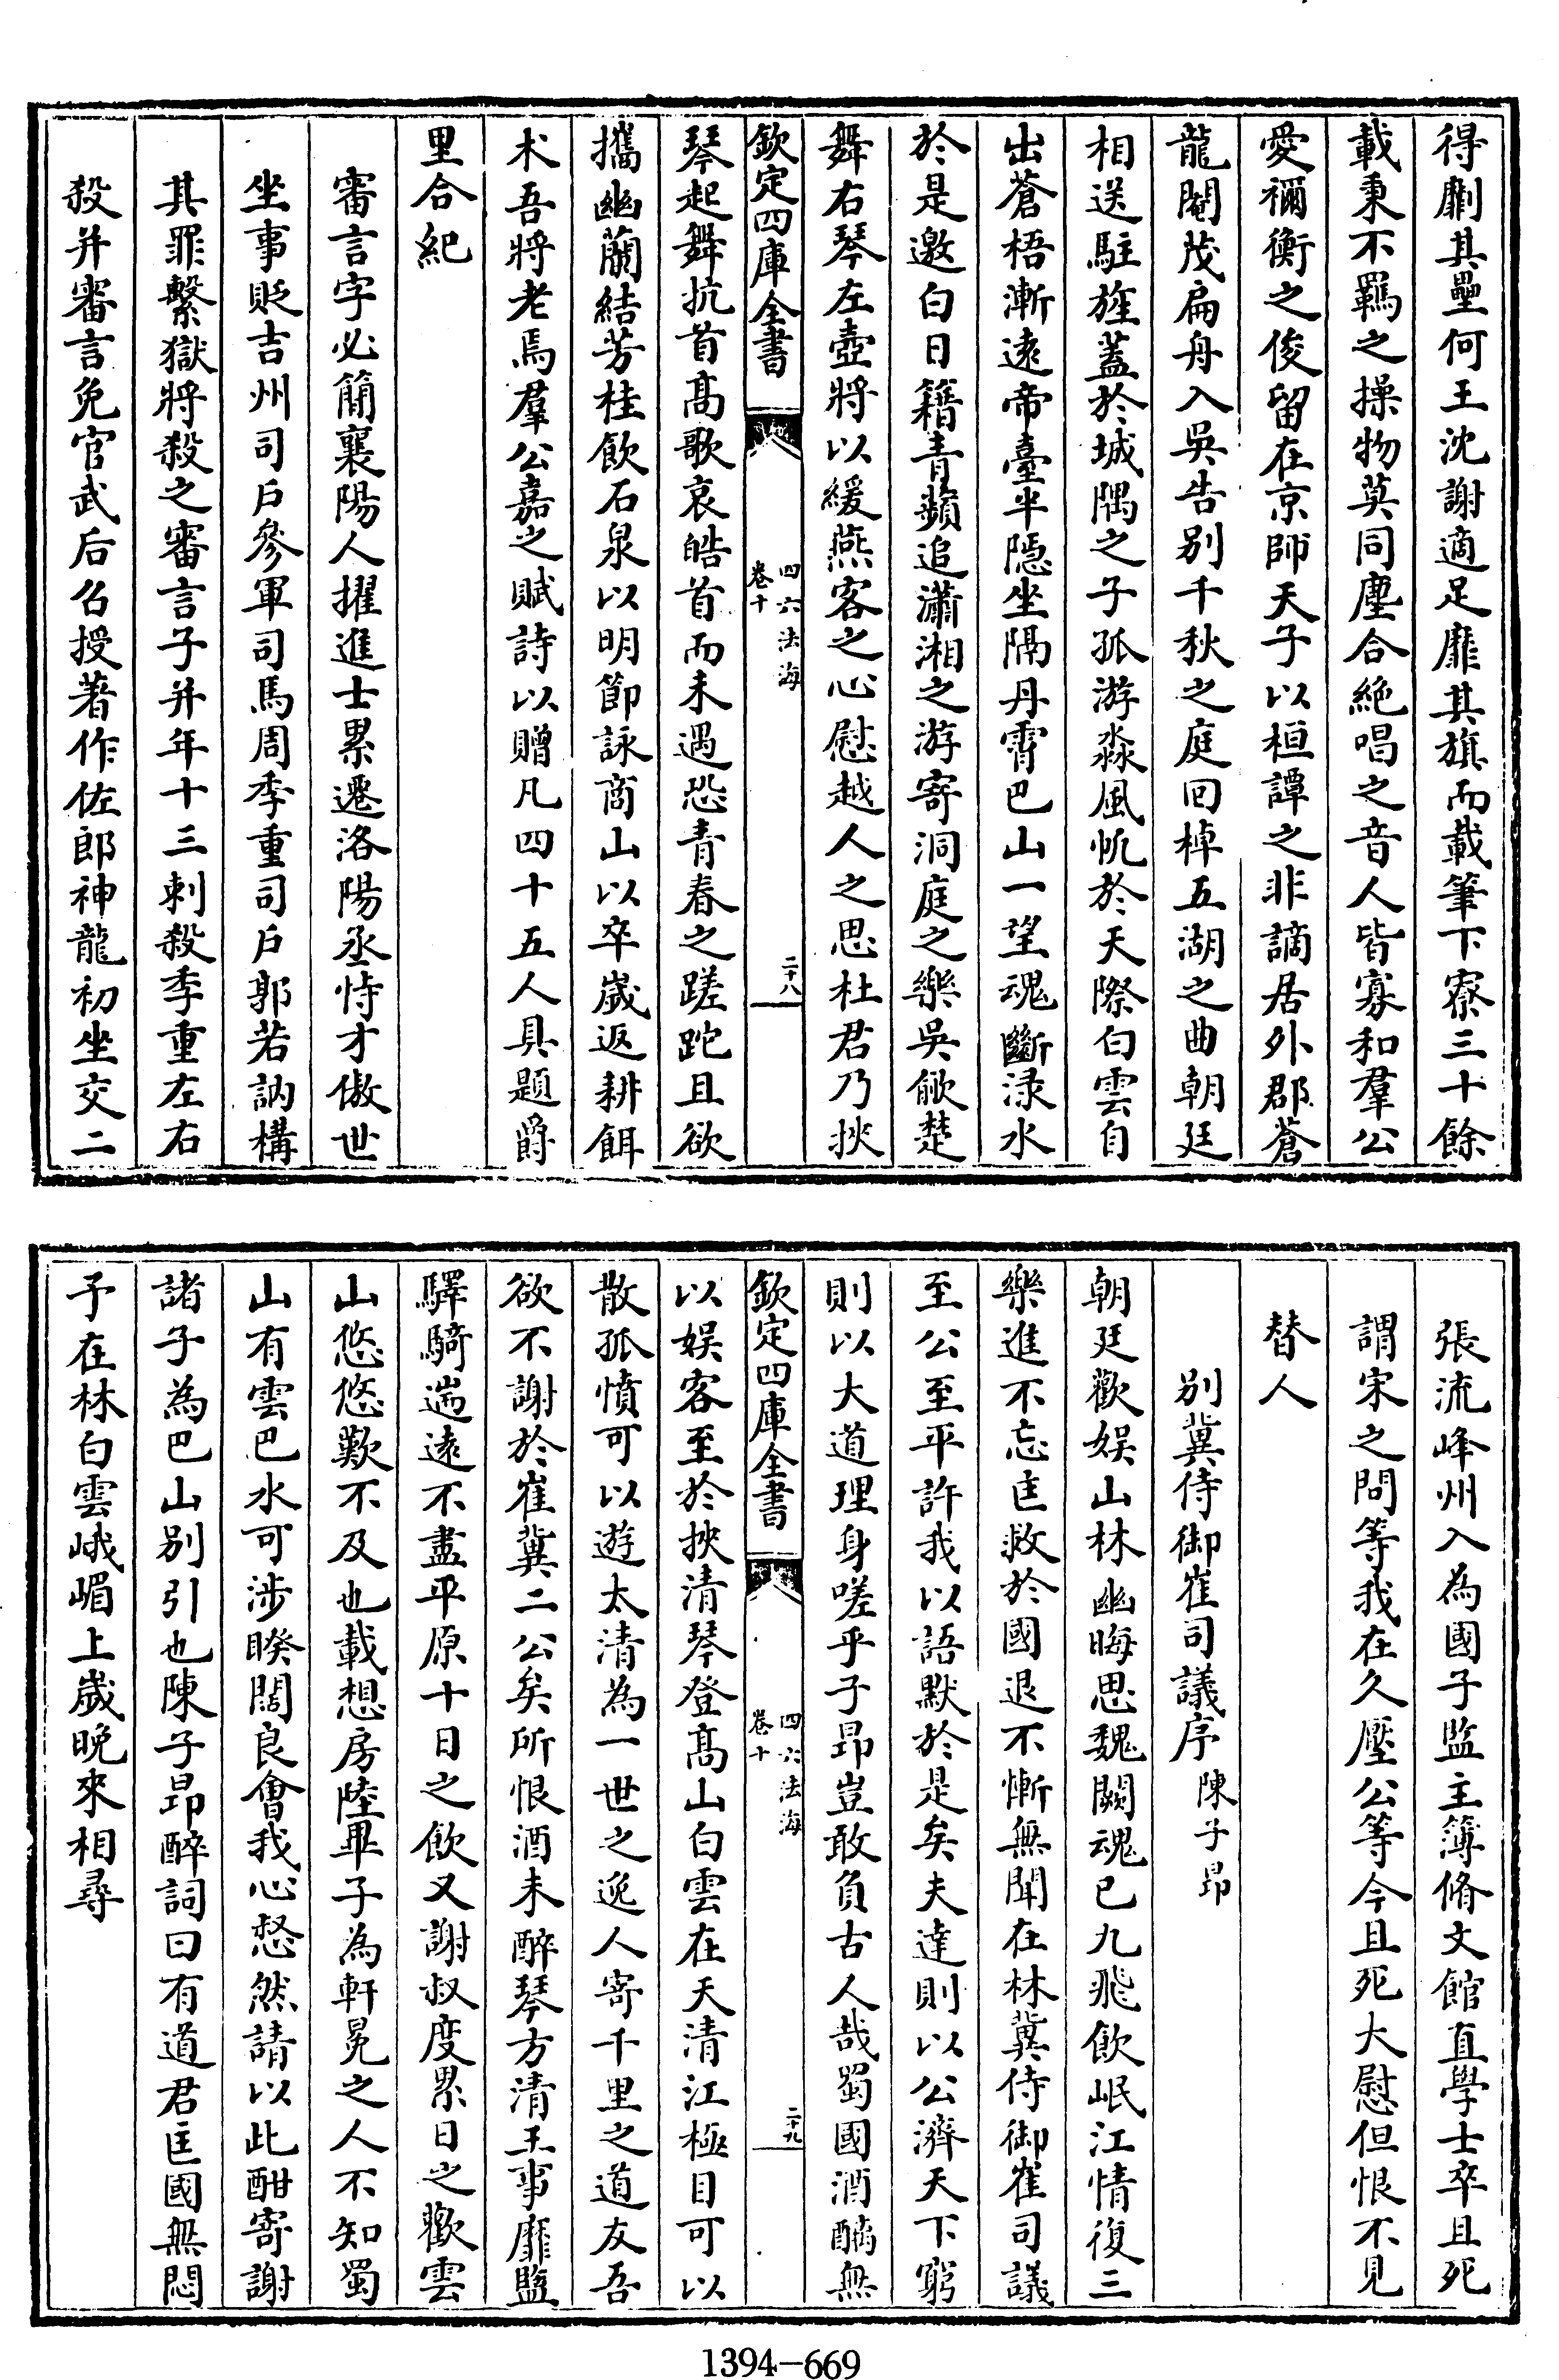 得劘其壘何王沈謝適足靡其旗而載筆下寮三十餘
載秉不羈之操物莫同塵合絶唱之音人皆寡和羣公
愛禰衡之俊留在京師天子以桓譚之非謫居外郡蒼
龍閹茂扁舟入吳告别千秋之庭回棹五湖之曲朝廷
相送駐旌蓋於城隅之子孤游淼風帆於天際白雲自
出蒼梧漸逺帝臺半隱坐隔丹霄巴山一望魂斷渌水
於是邀白日籍青蘋追瀟湘之游寄洞庭之樂吳歈楚
舞右琴左壺將以緩燕客之心慰越人之思杜君乃挾
欽定四庫全書
四六法海
卷十
二十八
琴起舞抗首髙歌哀皓首而未遇恐青春之蹉跎且欲
攜幽蘭結芳桂飲石泉以明節詠商山以卒歲返耕餌
术吾將老焉羣公嘉之賦詩以贈凡四十五人具題爵
里合紀
審言字必簡襄陽人擢進士累遷洛陽丞恃才傲世
坐事貶吉州司戶參軍司馬周季重司戶郭若訥構
其罪繫獄將殺之審言子并年十三刺殺季重左右
殺并審言免官武后召授著作佐郎神龍初坐交二
張流峰州入為國子監主簿脩文館直學士卒且死
謂宋之問等我在久壓公等今且死大慰但恨不見
替人
别冀侍御崔司議序 陳子昻
朝廷歡娱山林幽晦思魏闕魂已九飛飲岷江情復三
樂進不忘匡救於國退不慚無聞在林冀侍御崔司議
至公至平許我以語默於是矣夫達則以公濟天下窮
則以大道理身嗟乎子昻豈敢負古人哉蜀國酒醨無
欽定四庫全書
四六法海
卷十
二十九
以娱客至於挾清琴登髙山白雲在天清江極目可以
散孤憤可以遊太清為一世之逸人寄千里之道友吾
欲不謝於崔冀二公矣所恨酒未醉琴方清王事靡盬
驛騎遄逺不盡平原十日之飲又謝叔度累日之歡雲
山悠悠歎不及也載想房陸畢子為軒冕之人不知蜀
山有雲巴水可涉暌闊良會我心怒然請以此酣寄謝
諸子為巴山别引也陳子昻醉詞曰有道君匡國無悶
予在林白雲峨嵋上歲晚來相尋
1394-669